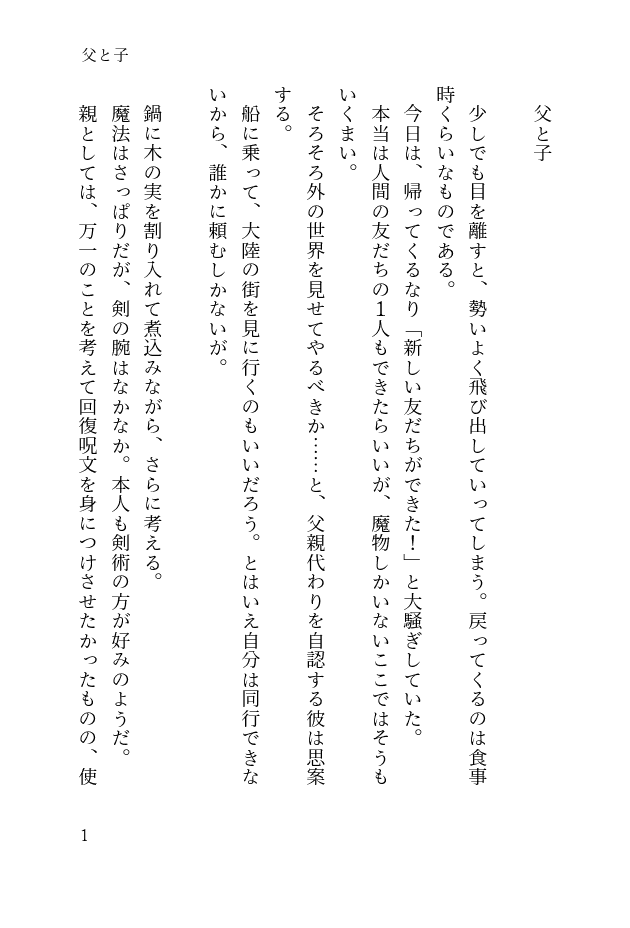 父と子
父と子
少しでも目を離すと、勢いよく飛び出していってしまう。戻ってくるのは食事
時くらいなものである。
今日は、帰ってくるなり「新しい友だちができた！」と大騒ぎしていた。
本当は人間の友だちの１人もできたらいいが、魔物しかいないここではそうも
いくまい。
そろそろ外の世界を見せてやるべきか……と、父親代わりを自認する彼は思案
する。
船に乗って、大陸の街を見に行くのもいいだろう。とはいえ自分は同行できな
いから、誰かに頼むしかないが。
鍋に木の実を割り入れて煮込みながら、さらに考える。
魔法はさっぱりだが、剣の腕はなかなか。本人も剣術の方が好みのようだ。
親としては、万一のことを考えて回復呪文を身につけさせたかったものの、使
1